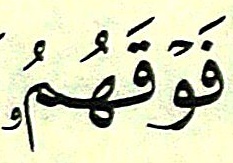 فَوۡقَهُمُۥ